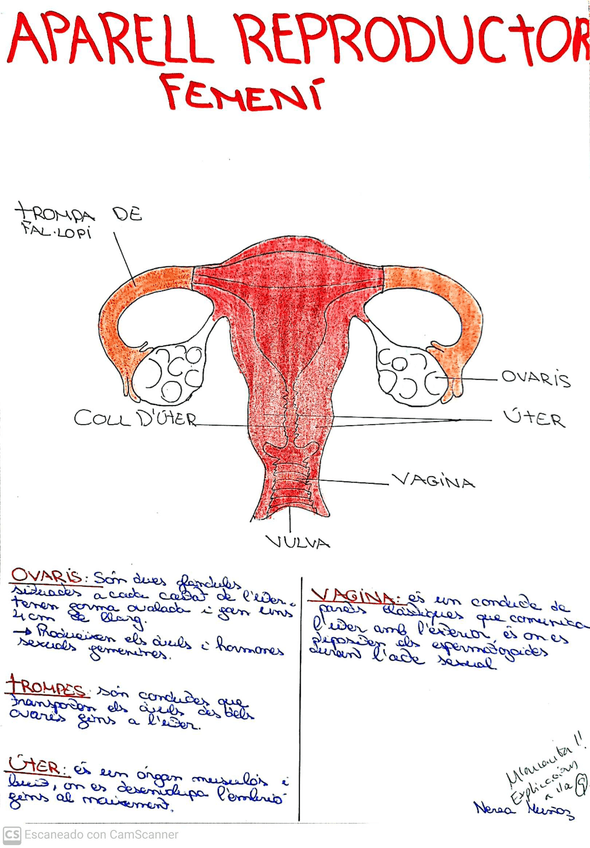 APARELL REPRODUCTOR
FEMENÍ
TROMPA DE
FAL·LOPI
OVARIS
COLL D'ÚTER
ÚTER
VAGINA
VULVA
OVARIS: Són dues glàndules
situades a cada costat de l'úter i
tenen forma ovalada i fan uns
4cm de llarg.
→ Produeixen els òvuls i hormones
sexuals femenines.
TROMPES: són conductes que
transporten els òvuls des dels
ovaris fins a l'úter.
ÚTER: és un òrgan musculós i
buit, on es desenvolupa l'embrió
fins al naixement.
VAGINA: és un conducte de
parets elàstiques que comunica
l'úter amb l'exterior, és on es
dipositen els espermatozoides
durant l'acte sexual
Explicación
Nerea Muñoz
CS Escaneado con CamScanner